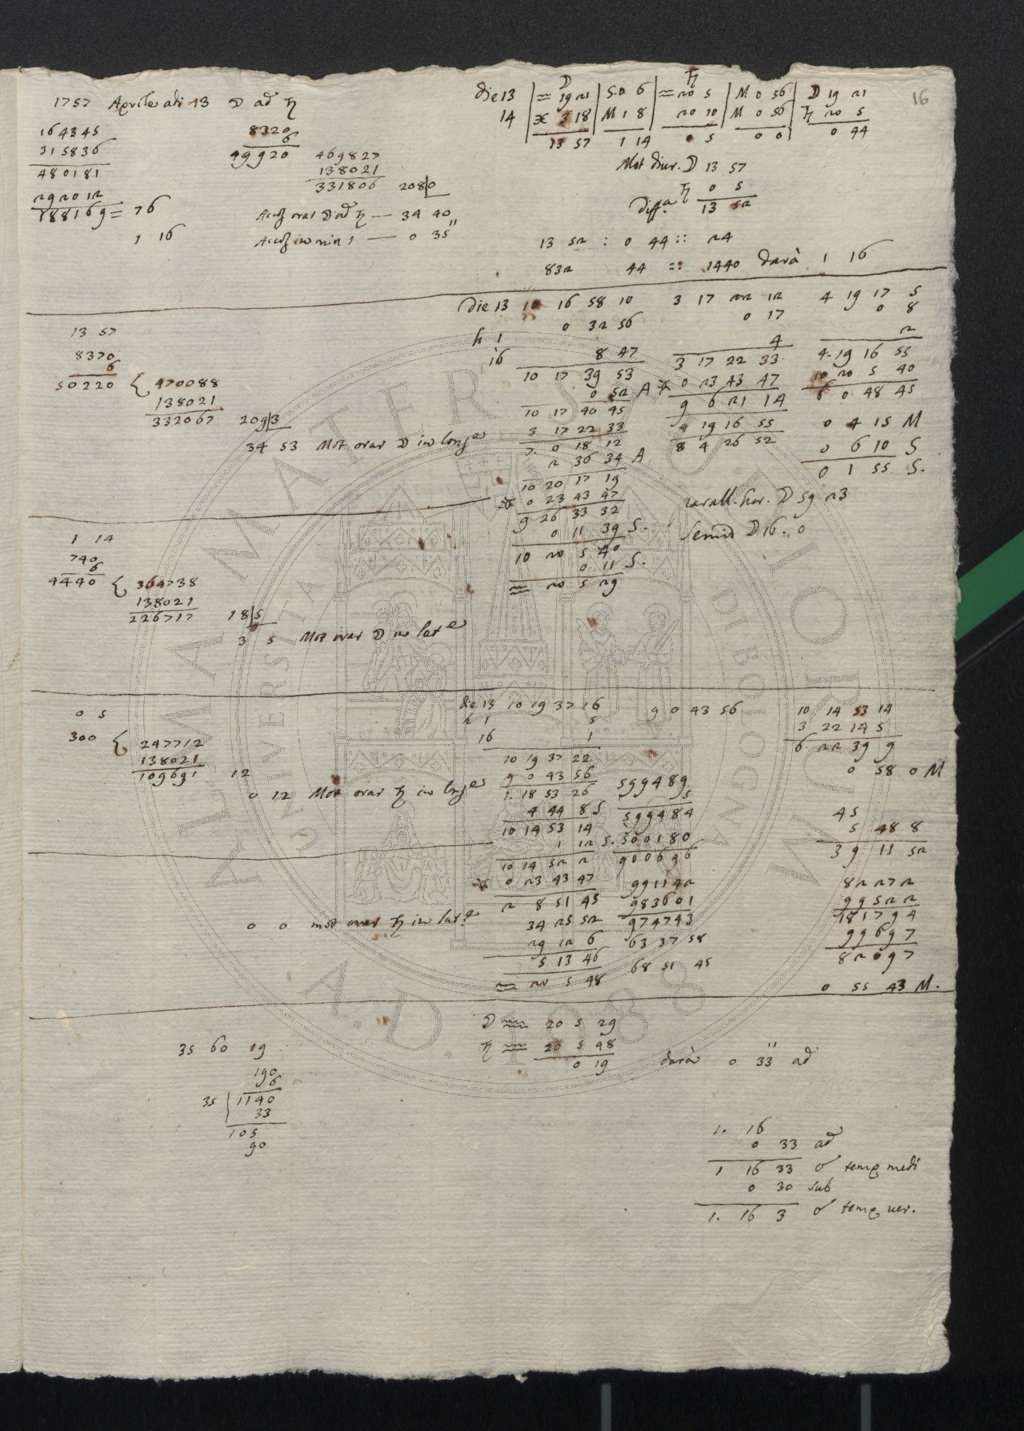 16
1757 Aprile adi 13 ☽ ad ♄
164345
315836
480181
292012
188169 = 76
1 16
8320
6
99920
469827
138021
331806 208|0
Acces orar ☽ ad ♄ — 34 40
Acces in min 1 — 0 35"
die 13 ♒ 19 21 S 0 6 ♒ 20 5 M 0 56 ☽ 19 21
14 ♓ 3 18 M 1 8 20 10 M 0 56 ♄ 20 5
13 57 1 14 0 5 0 0 0 44
Mot diur. ☽ 13 57
♄ 0 5
Diff.a 13 52
13 52 : 0 44 :: 24
832 44 :: 1440 darà 1 16
13 57
8370
6
50220 { 470088
138021
332067 209|3
34 53 Mot orar ☽ in long.e
die 13 10 16 58 10
h 1 0 32 56
16 8 47
10 17 39 53
0 52 A
10 17 40 45
3 17 22 33
7. 0 18 12
2 36 34 A
10 20 17 19
0 23 43 47
9 26 33 32
0 11 39 S.
10 20 5 40
0 11 S.
♒ 20 5 29
3 17 22 12
0 17
4
3 17 22 33
0 23 43 47
9 6 21 14
9 19 16 55
8 4 26 52
4 19 17 5
0 8
2
4. 19 16 55
10 20 5 40
6 0 48 45
0 4 15 M
0 6 10 S
0 1 55 S.
Parall. hor. ☽ 59 23
Semid ☽ 16. 0
1 14
740
6
4440 { 364738
138021
226717 18|5
3 5 Mot orar ☽ in lat.e
0 5
300 { 247712
138021
109691 12
0 12 Mot orar ♄ in long.e
0 0 mot orar ♄ in lat.e
die 13 10 19 37 16
h 1 5
16 1
10 19 37 22
9 0 43 56
1. 18 53 26
4 44 8 S
10 14 53 14
1 12 S.
10 14 52 2
0 23 43 47
2 8 51 45
34 25 52
29 12 6
5 13 46
♒ 20 5 48
9 0 43 56
599489
5
599484
300180
900696
991142
983601
974743
63 37 58
68 51 45
10 14 53 14
3 22 14 5
6 22 39 9
0 58 0 M
45
5 48 8
39 11 52
82272
99522
181794
99697
82097
0 55 43 M.
☽ ♒ 20 5 29
♄ ♒ 20 5 48
0 19
darà 0 33" ad
35 60 19
190
6
35 | 1140
33
105
90
1. 16
0 33 ad
1 16 33 ☌ temp medi
0 30 sub
1. 16 3 ☌ temp ver.
ALMA MATER STUDIORUM
UNIVERSITA DI BOLOGNA
A.D. 1088